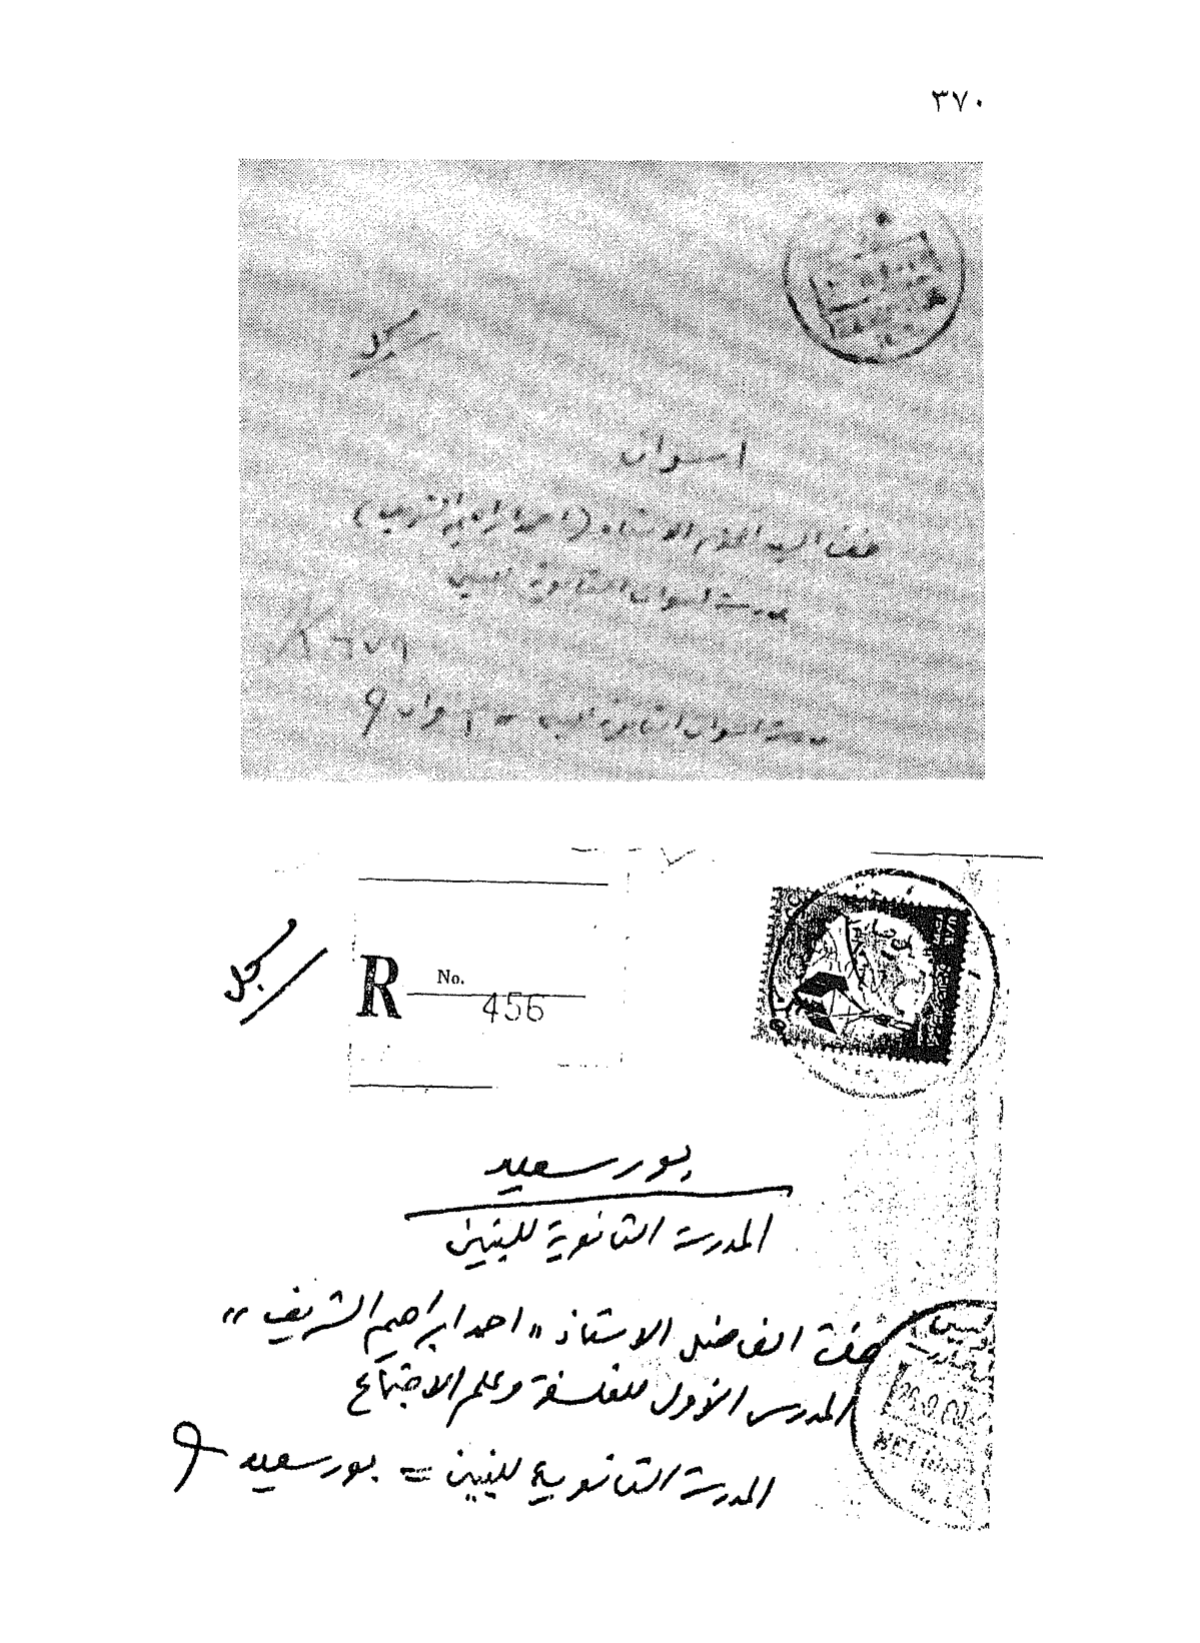 ٣٧٠
مسجل
اسوان
حضرة السيد المحترم الاستاذ (احمد ابراهيم الشريف)
مدرسة اسوان الثانوية للبنين
مدرسة اسوان الثانوية للبنين = اسوان
مسجل
R No. 456
بور سعيد
المدرسة الثانوية للبنين
حضرة الفاضل الاستاذ "احمد ابراهيم الشريف"
المدرس الأول للفلسفة وعلم الاجتماع
المدرسة الثانوية للبنين = بور سعيد